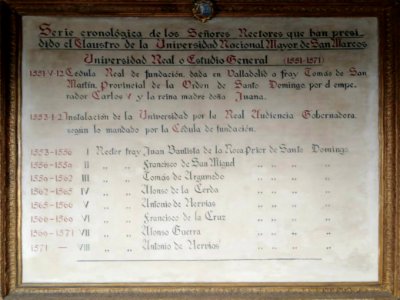 Serie cronológica de los Señores Rectores que han presi-
dido el Claustro de la Universidad Nacional Mayor de San Marcos
Universidad Real o Estudio General (1551-1571)
1551-V-12 Cédula Real de fundación, dada en Valladolid a fray Tomás de San
Martín, Provincial de la Orden de Santo Domingo, por el empe-
rador Carlos V y la reina madre doña Juana.
1553-I-2 Instalación de la Universidad por la Real Audiencia Gobernadora,
según lo mandado por la Cédula de fundación.
1553-1556 I Rector fray Juan Bautista de la Roca Prior de Santo Domingo.
1556-1559 II „ „ Francisco de San Miguel „ „ „ „
1559-1562 III „ „ Tomás de Argumedo „ „ „ „
1562-1565 IV „ „ Alonso de la Cerda „ „ „ „
1565-1566 V „ „ Antonio de Hervias „ „ „ „
1566-1569 VI „ „ Francisco de la Cruz „ „ „ „
1569-1571 VII „ „ Alonso Guerra „ „ „ „
1571 — VIII „ „ Antonio de Hervias „ „ „ „